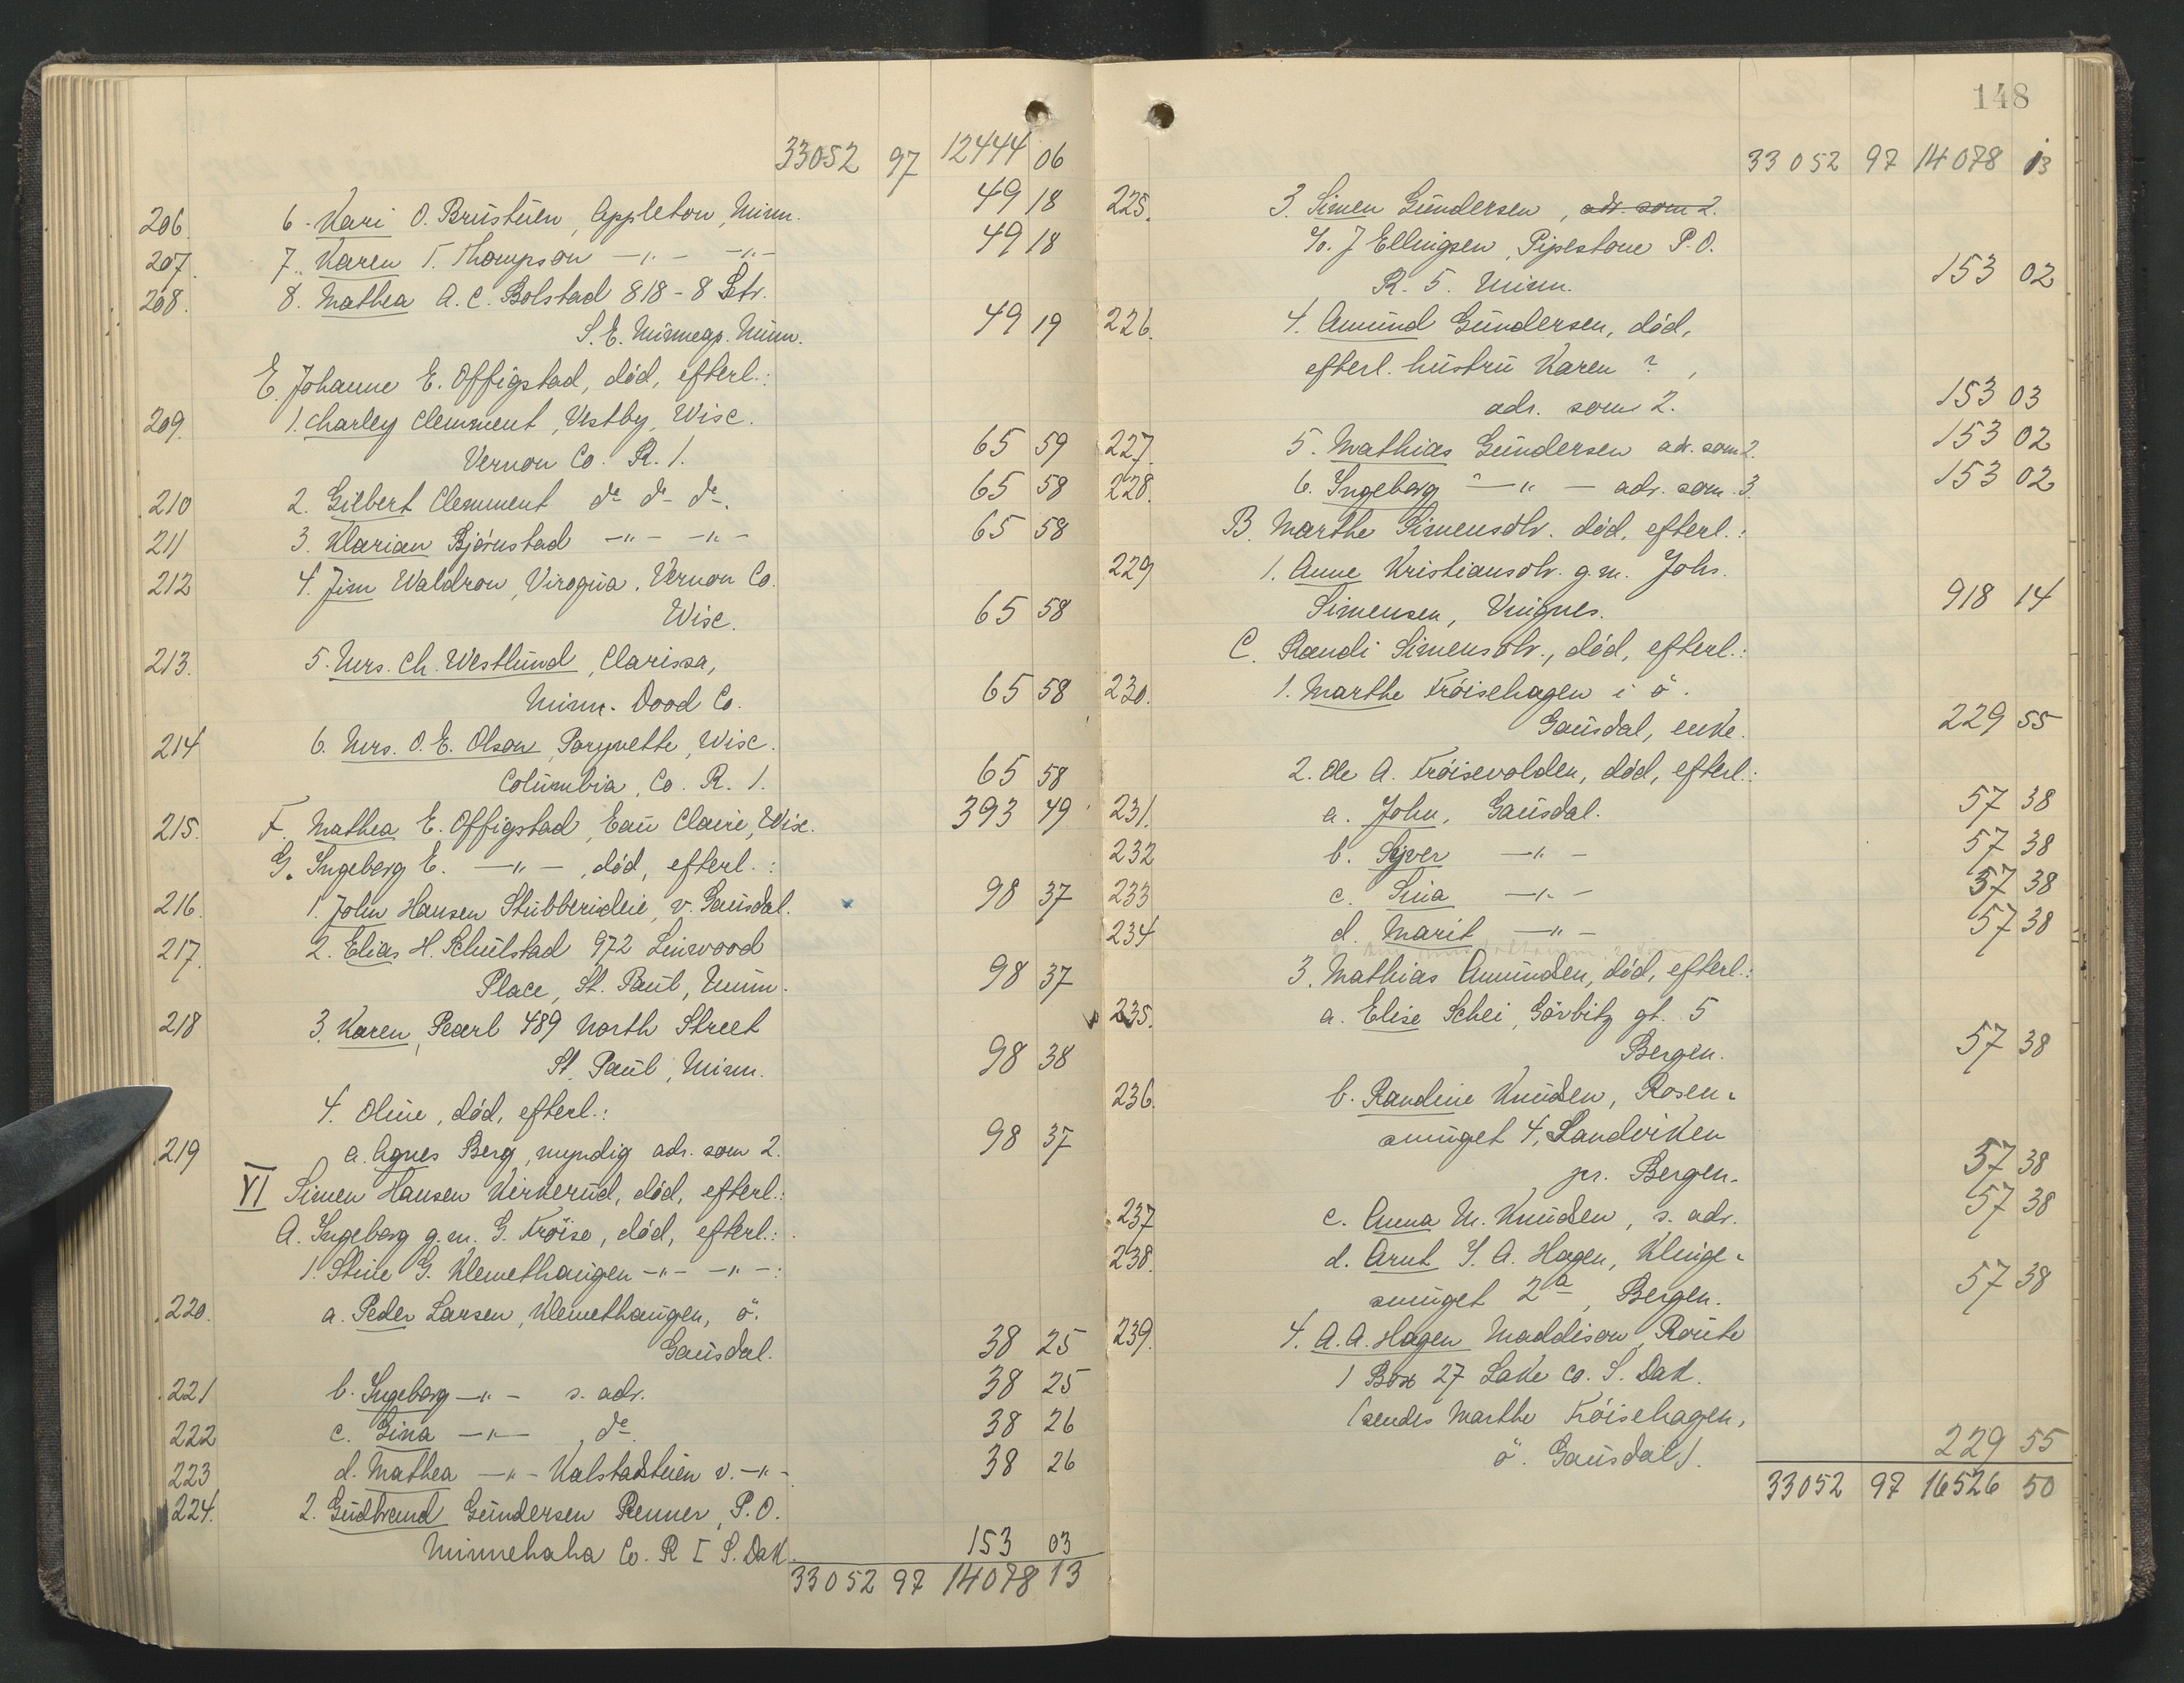 33052 97 12444 06
206. 6. Kari O. Brustuen, Appleton, Minn. 49 18
207. 7. Karen T. Thompson —"— —"— 49 18
208. 8. Mathea A. C. Bolstad 818 - 8 Str.
S. E. Minneap. Minn. 49 19
E. Johanne E. Offigstad, död, efterl.:
209. 1. Charley Clemment, Vestby, Wisc.
Vernon Co. R. 1. 65 59
210 2. Gilbert Clemment do do do. 65 58
211 3. Klarian Bjørnstad —"— —"— 65 58
212 4. Jim Waldron, Viroqua, Vernon Co.
Wisc. 65 58
213. 5. Mrs. Ch. Westlund, Clarissa,
Minn. Dood Co. 65 58
214 6. Mrs. O. E. Olson, Poynette, Wisc.
Columbia, Co. R. 1. 65 58
215. F. Mathea E. Offigstad, Eau Claire, Wisc. 393 49
G. Ingeborg E. —"—, död, efterl.:
216. 1. John Hansen Stubberudeie, v. Gausdal. 98 37
217. 2. Elias H. Schulstad 972 Linwood
Place, St. Paul, Minn. 98 37
218 3. Karen, Pearl 489 North Street
St. Paul, Minn. 98 38
4. Oline, död, efterl.:
219 a. Agnes Berg, myndig adr. som 2. 98 37
VI Simen Hansen Kirkerud, död, efterl.:
A. Ingeborg g.m. G. Fröise, död, efterl.:
1. Stine G. Klemethaugen —"— —"—:
220. a. Peder Larsen, Klemethaugen, ö.
Gausdal. 38 25
221 b. Ingeborg —"— s. adr. 38 25
222 c. Gina —"— do 38 26
223 d. Mathea —"— Kalstadstuen v. —"— 38 26
224. 2. Gudbrand Gundersen Renner, P.O.
Minnehaha Co. R I S. Dak. 153 03
33052 97 14078 13
148
33052 97 14078 13
225. 3. Simen Gundersen, adr. som 2.
c/o. J Ellingsen, Pipestone P.O.
R. 5. Minn. 153 02
226. 4. Amund Gundersen, död,
efterl. hustru Karen ?,
adr. som 2. 153 03
227. 5. Mathias Gundersen adr. som 2. 153 02
228. 6. Ingeborg —"— adr. som 3. 153 02
B. Marthe Simensdtr. död, efterl.:
229 1. Anne Kristiansdtr. g.m. Johs.
Simensen, Vingnes. 918 14
C. Randi Simensdtr., död, efterl.:
230. 1. Marthe Fröisehagen i ö.
Gausdal, enke. 229 55
2. Ole A. Fröisevolden, död, efterl.:
231. a. John, Gausdal. 57 38
232 b. Syver —"— 57 38
233 c. Sina —"— 57 38
234 d. Marit —"— 57 38
3. Mathias Amunden, död, efterl.:
235. a. Elise Schei, Görbitz gt. 5
Bergen. 57 38
236. b. Randine Knudsen, Rosen-
smuget 4, Sandviken
pr. Bergen. 57 38
237 c. Anna M. Knudsen, s. adr. 57 38
238. d. Arnt S. A. Hagen, Klinge-
smuget 2a, Bergen. 57 38
239. 4. A. A. Hagen Maddison, Route
1 Box 27 Lake Co. S. Dak.
(sendes Marthe Fröisehagen,
ö. Gausdal). 229 55
33052 97 16526 50